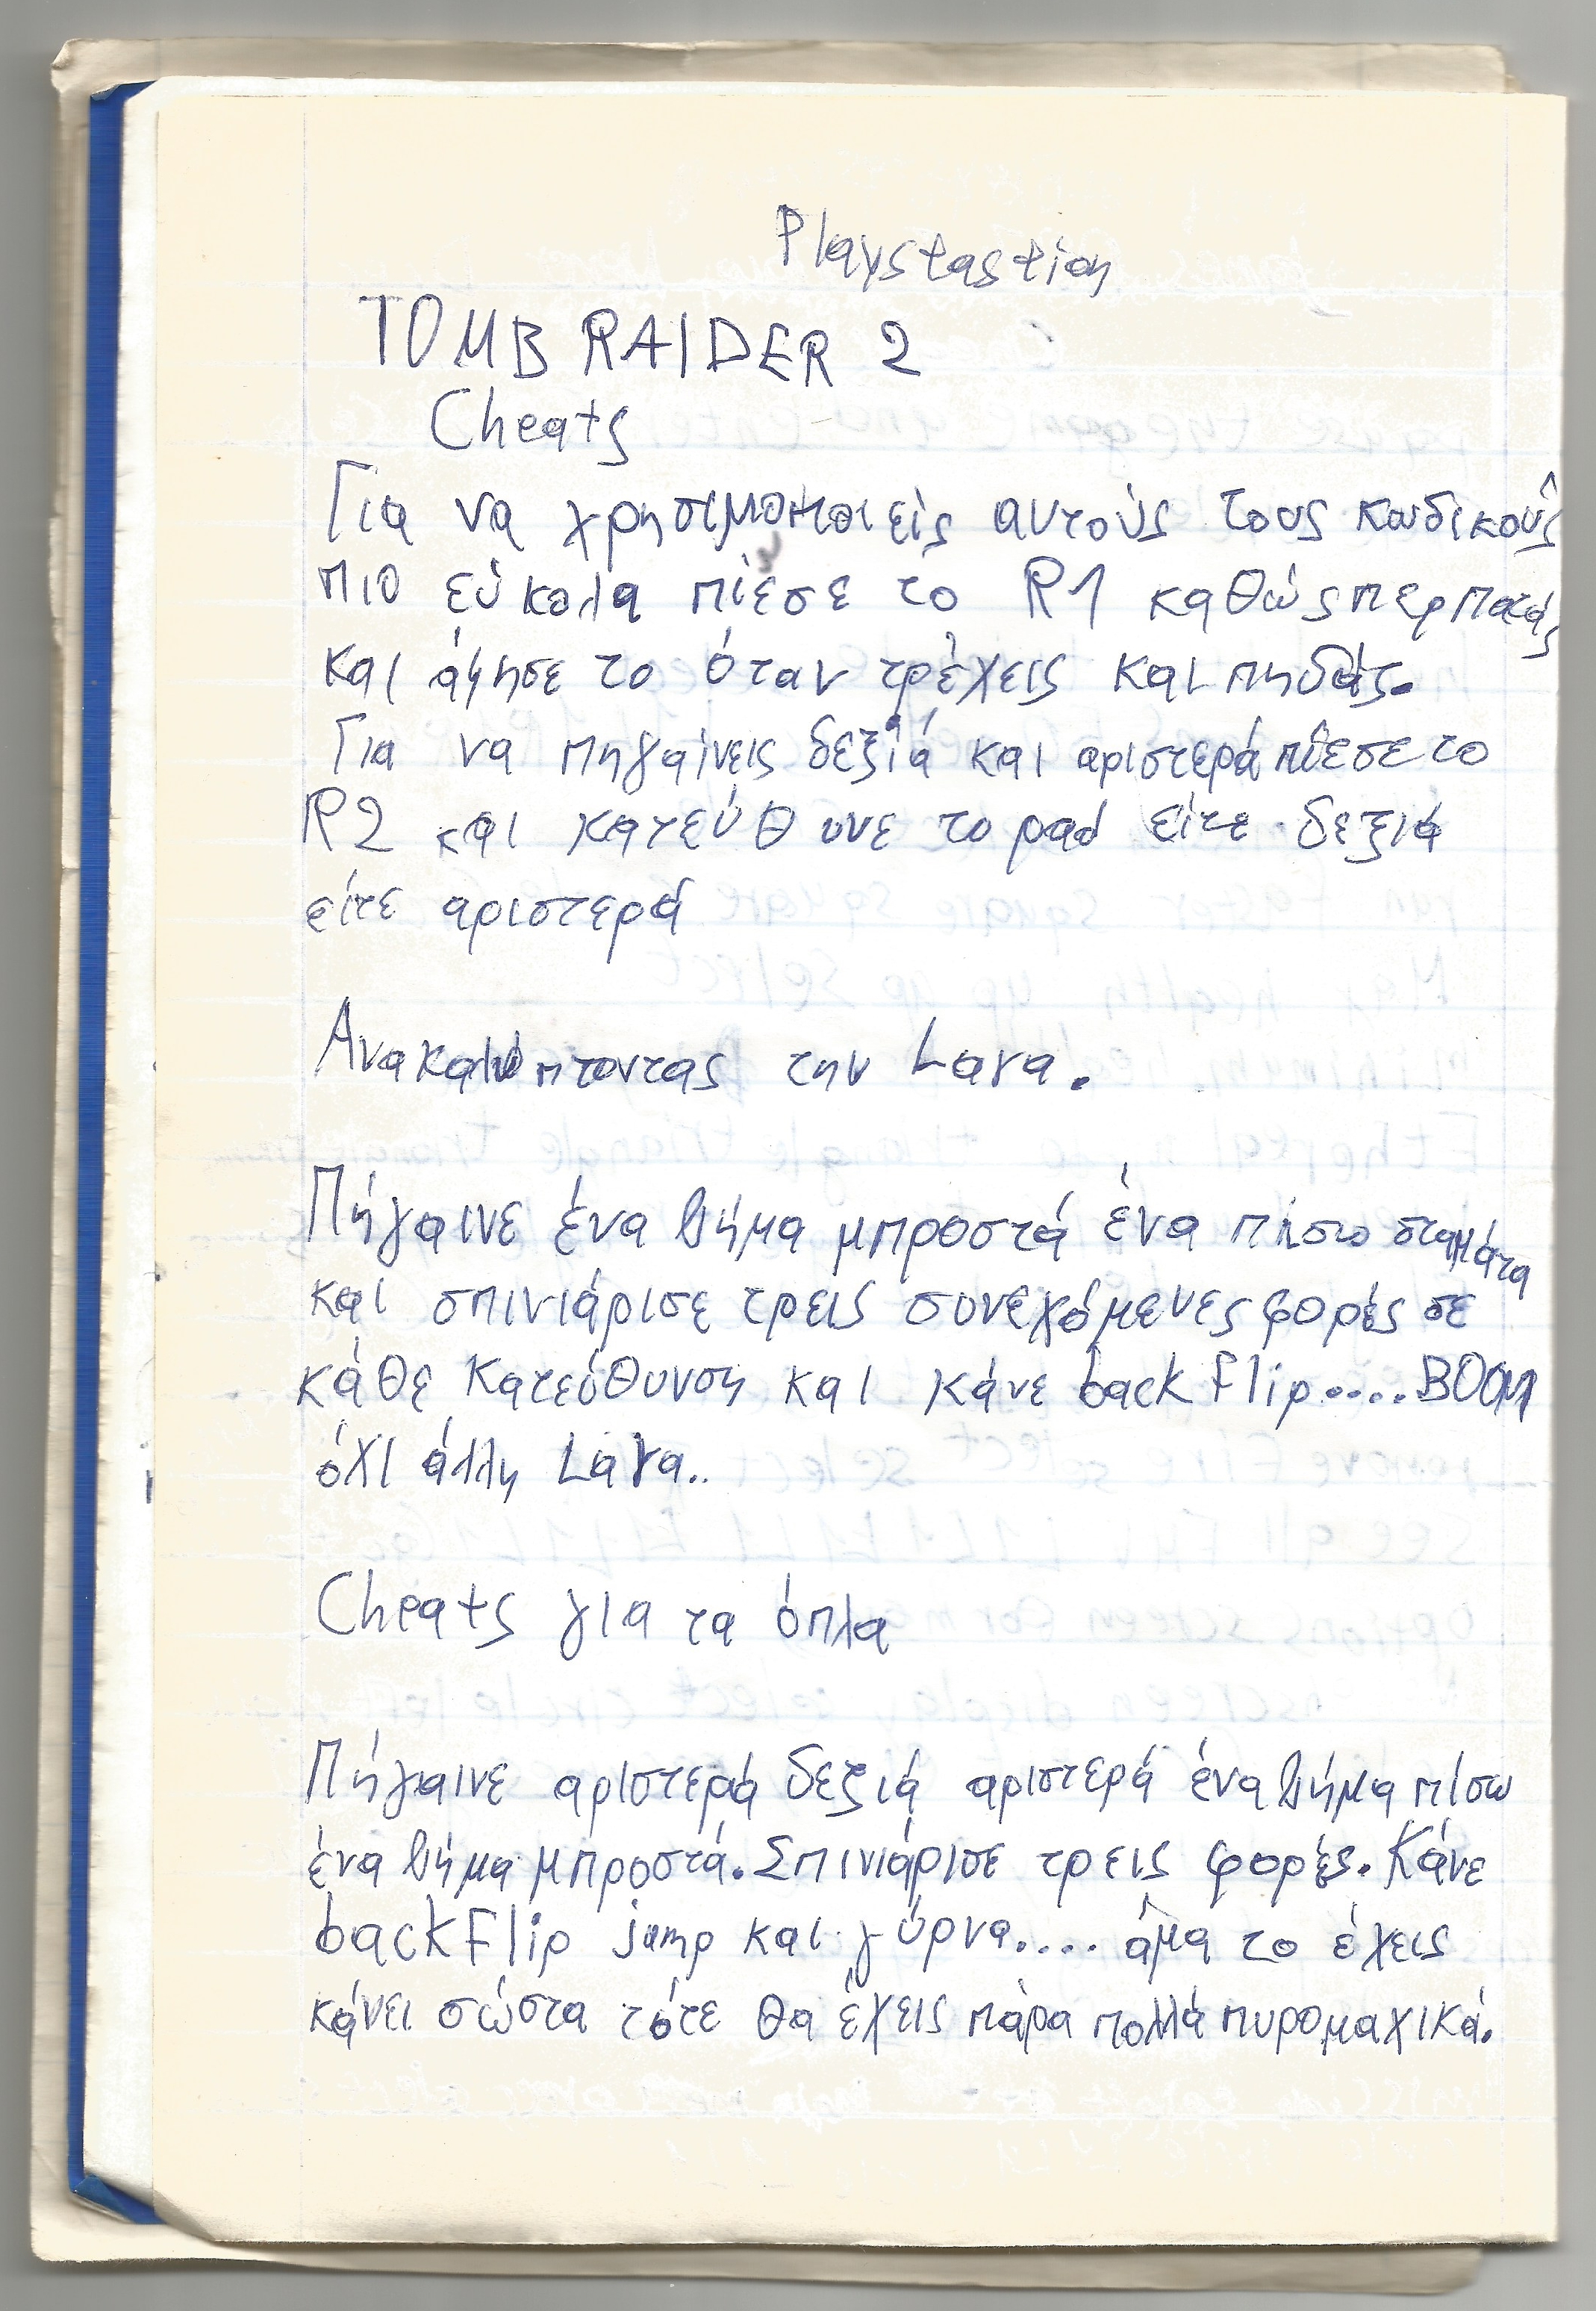 Playstastion
TOMB RAIDER 2
Cheats
Για να χρησιμοποιείς αυτούς τους κωδικούς
πιο εύκολα πίεσε το R1 καθώς περπατάς
και άφησε το όταν τρέχεις και πηδάς.
Για να πηγαίνεις δεξιά και αριστερά πίεσε το
R2 και κατεύθυνε το pad είτε δεξιά
είτε αριστερά
Ανακαλύπτοντας την Lara.
Πήγαινε ένα βήμα μπροστά ένα πίσω σταμάτα
και σπινιάρισε τρεις συνεχόμενες φορές σε
κάθε κατεύθυνση και κάνε back flip.... BOOM
όχι άλλη Lara..
Cheats για τα όπλα
Πήγαινε αριστερά δεξιά αριστερά ένα βήμα πίσω
ένα βήμα μπροστά. Σπινιάρισε τρεις φορές. Κάνε
backFlip jump και γύρνα.... άμα το έχεις
κάνει σώστα τότε θα έχεις πάρα πολλά πυρομαχικά.